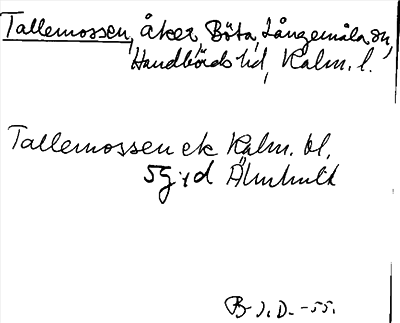 Tallemossen, åker Böta, Långemåla sn,
Handbörds hd, Kalm. l.
Tallemossen ek Kalm. bl.
5g:d Älmhult
B I. D. -55.